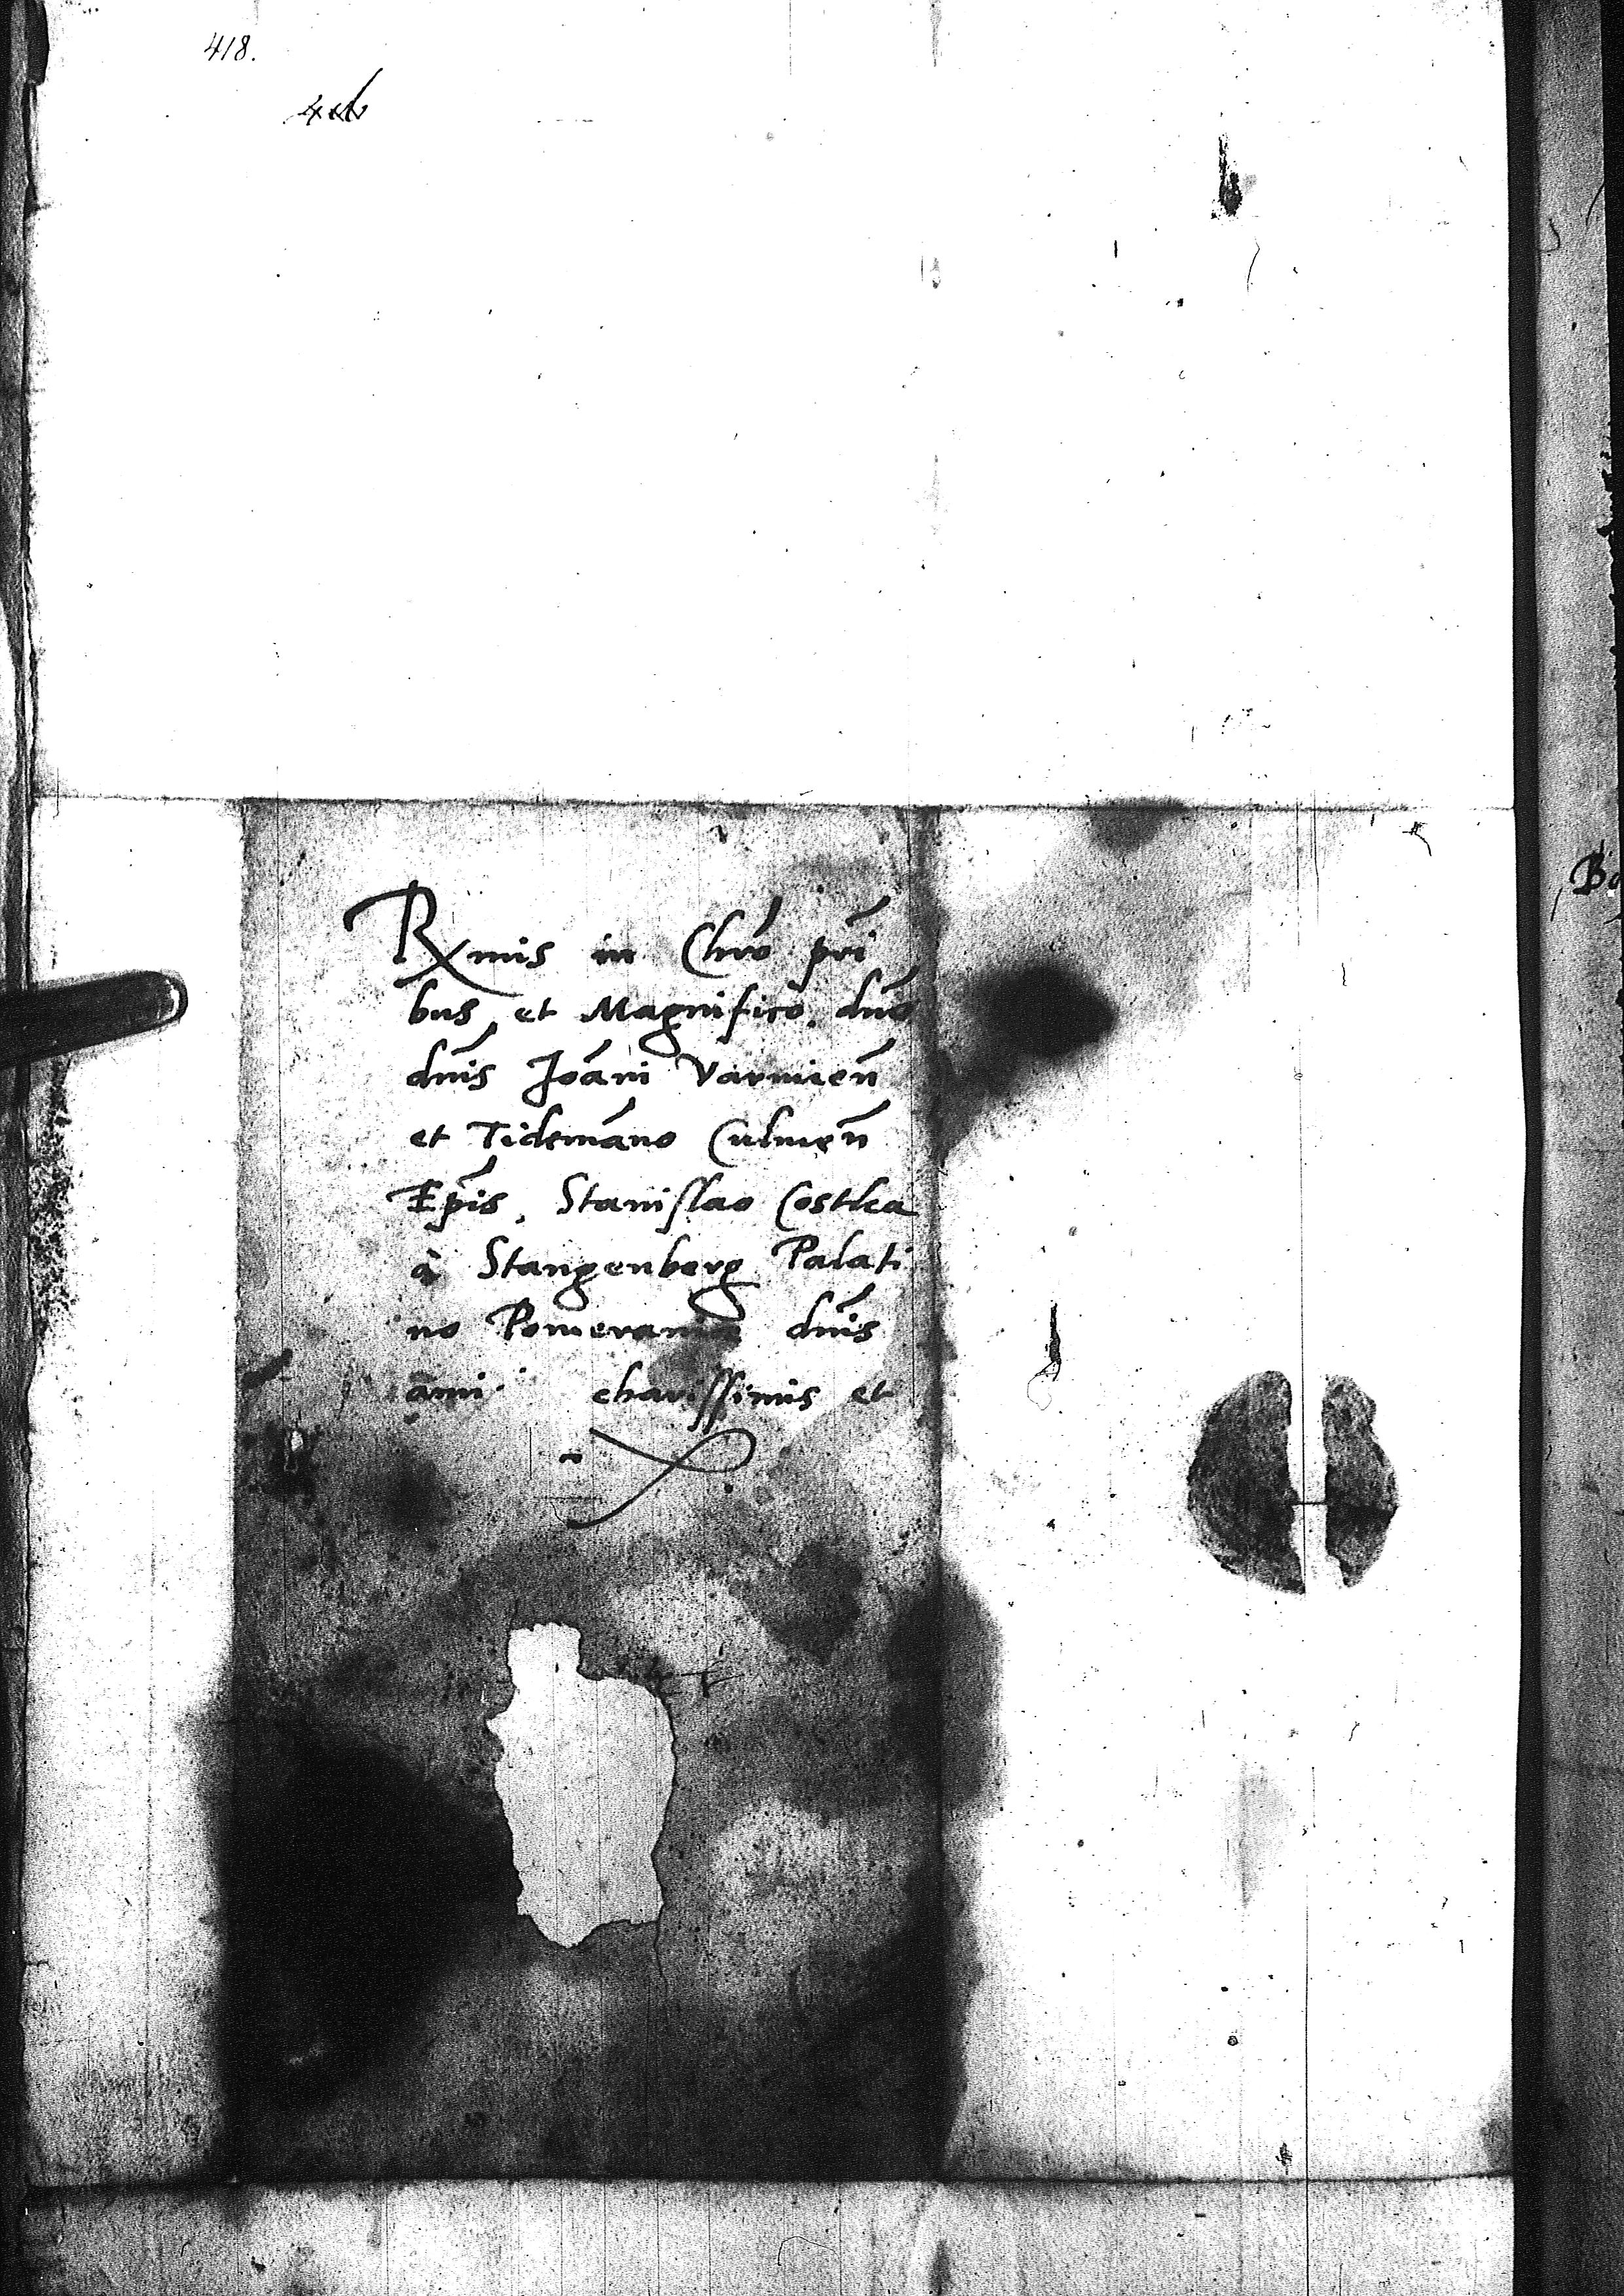 418.
Rmis in Chro pri
bus et Magnifico dno
dnis Joāni Varmien̄
et Tidemāno Culmen̄
Epis, Stanislao Costka
à Stangenberg Palati
no Pomeraniæ dnis
ami charissimis et